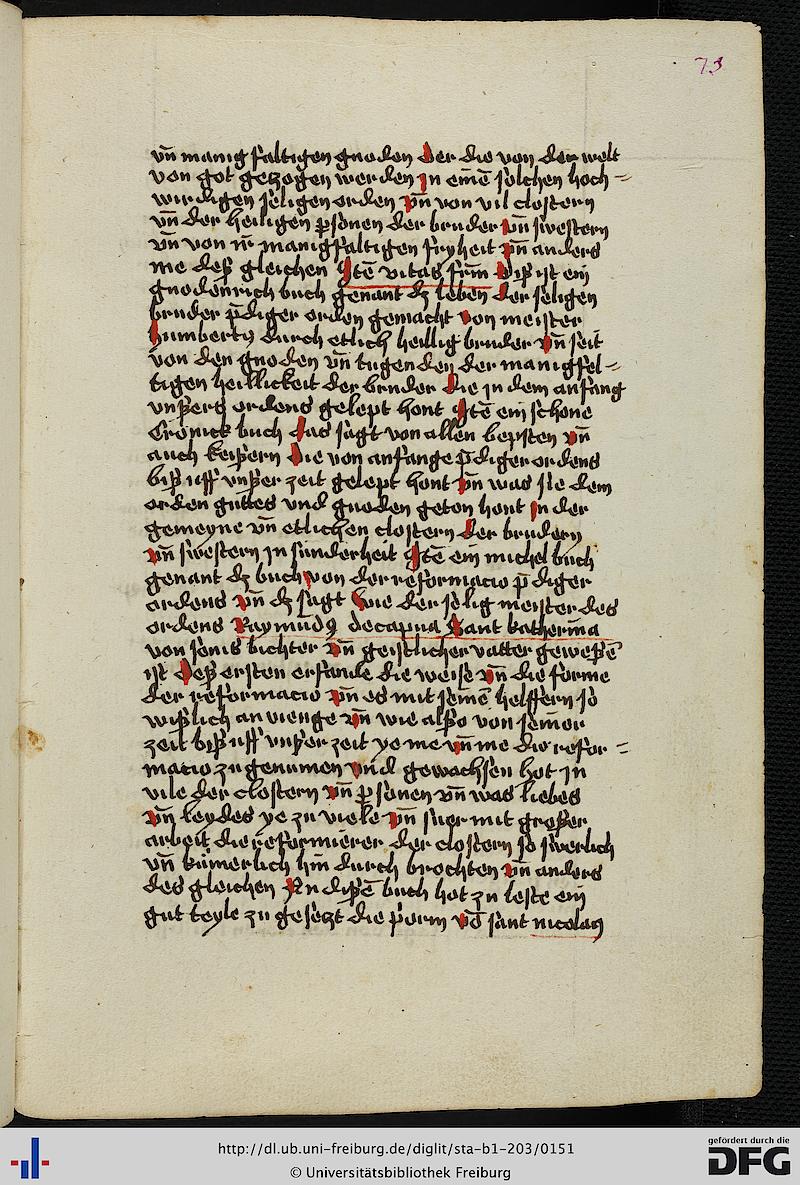 73
vn̄ manigfaltigen gnoden Der die von der welt
von got gezogen werden Jn eine̅ solchen hoch=
wirdigen seligen orden Vn̄ von vil clostern
vn̄ der heiligen p̱sonen der bruder Vn̄ swestern
vn̄ von ir̅ manigfaltigen fryheit Vn̄ anders
me deß gleichen Jte̅ vitas frm̅ Diß ist ein
gnodenrich buch genant dz leben der seligen
bruder p̅diger orden gemacht von meister
humbertꝰ durch etlich heillig bruder Vn̄ seit
von den gnoden vn̄ tugenden der manigfel=
tigen heillickeit der bruder Die jn dem anfang
vnßers ordens gelept hont Jte̅ ein schone
Cronick buch Das sagt von allen bepsten vn̄
auch keißern Die von anfange p̅diger ordens
biß uff vnßer zeit gelept hont Vn̄ was sie dem
orden guttes vnd gnoden geton hont Jn der
gemeyne vn̄ etlichen clostern Der brudern
vn̄ swestern jn sunderheit Jte̅ ein michel buch
genant dz buch von der reformacio p̅diger
ordens Vn̄ dz sagt Wie der selig meister des
ordens Raymu̅dꝰ decapua Sant katherina
von senis bichter Vn̄ geistlicher vatter geweße̅
ist Deß ersten erfande die weise Vn̄ die forme
der reformacio Vn̄ es mit seine̅ helffern so
wißlich an vienge Vn̄ wie alßo von seiner
zeit biß uff vnßer zeit ye me vn̄ me die refor=
macio zu genumen vnd gewachsen hot jn
vile der clostern Vn̄ p̱sonen vn̄ was liebes
Vn̄ leydes ye zu viele Vn̄ suor mit großer
arbeit die reformierer der clostern so swerlich
vn̄ kümerlich hin durch brochten Vn̄ anders
des gleichen An diße̅ buch hot zu leste ein
gut teyle zu gesetzt die p̓orin vo̅ sant nicolaꝰ
http://dl.ub.uni-freiburg.de/diglit/sta-b1-203/0151
© Universitätsbibliothek Freiburg
gefördert durch die
DFG